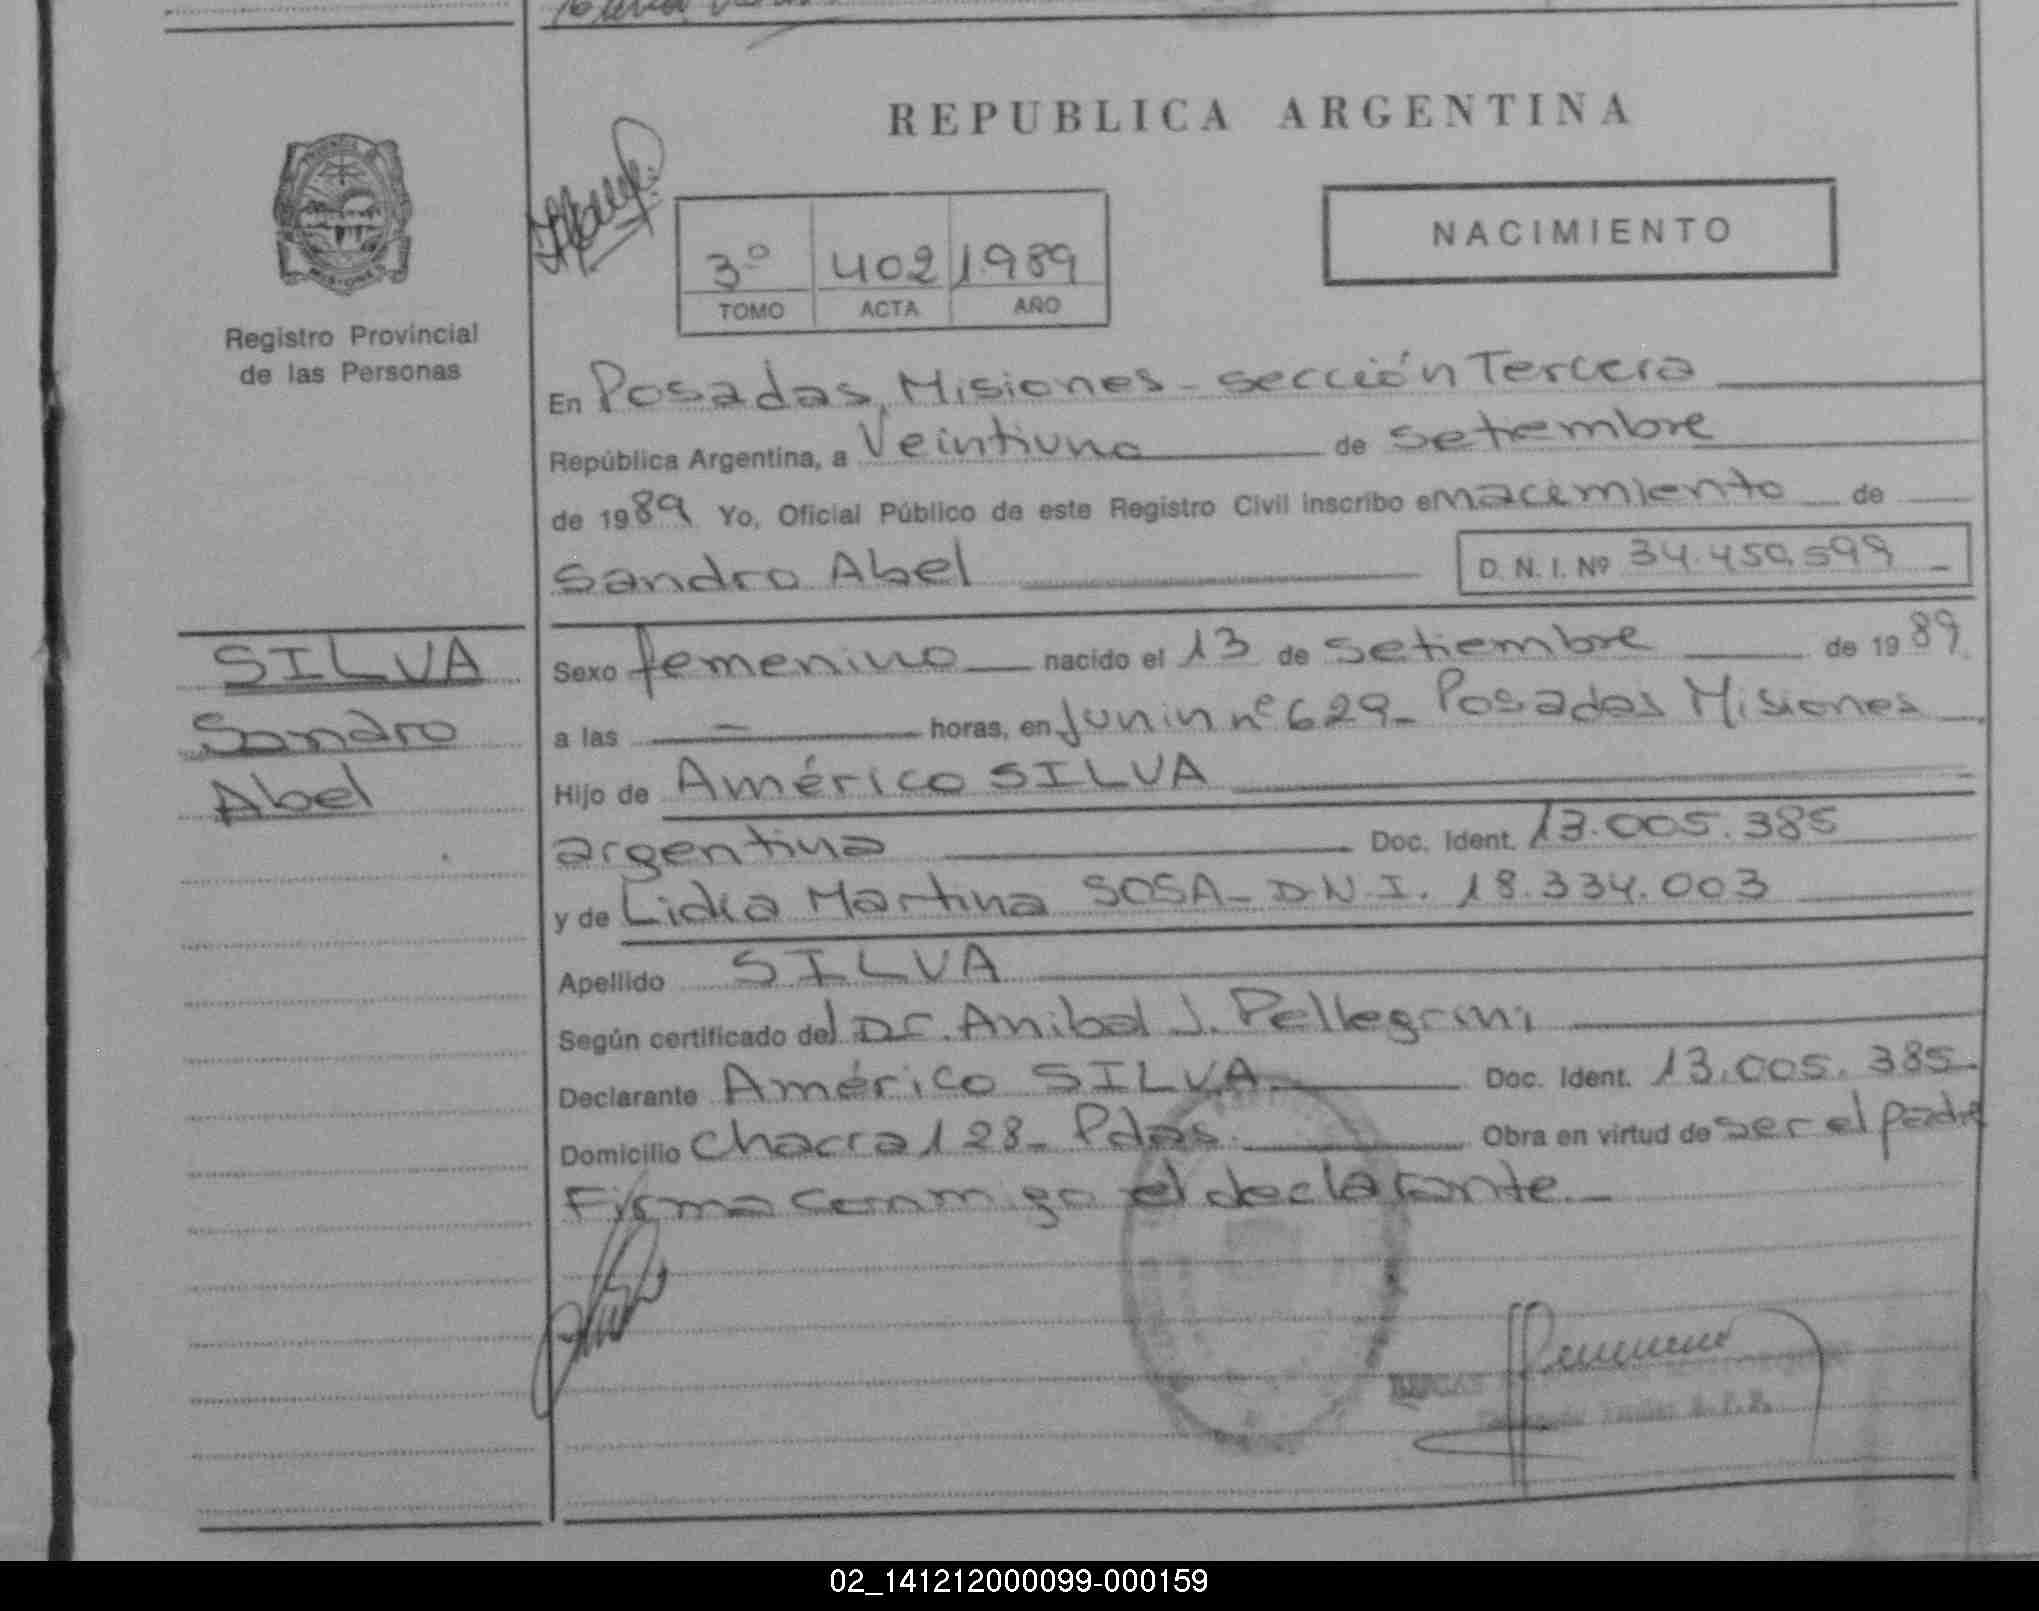 REPUBLICA ARGENTINA
NACIMIENTO
3º 402 1989
TOMO ACTA AÑO
Registro Provincial
de las Personas
En Posadas, Misiones - sección Tercera
República Argentina, a Veintiuno de setiembre
de 1989 Yo, Oficial Público de este Registro Civil inscribo el nacimiento de
Sandro Abel D. N. I. Nº 34.450.599
SILVA
Sandro
Abel
Sexo femenino nacido el 13 de setiembre de 1989
a las - horas, en Junin nº 629 - Posadas Misiones
Hijo de Américo SILVA
argentina Doc. Ident. 13.005.385
y de Lidia Martina SOSA - D.N.I. 18.334.003
Apellido SILVA
Según certificado del Dr. Anibal J. Pellegrini
Declarante Américo SILVA Doc. Ident. 13.005.385
Domicilio Chacra 128 - Pdas. Obra en virtud de ser el padre
Firma conmigo el declarante. -
02_141212000099-000159